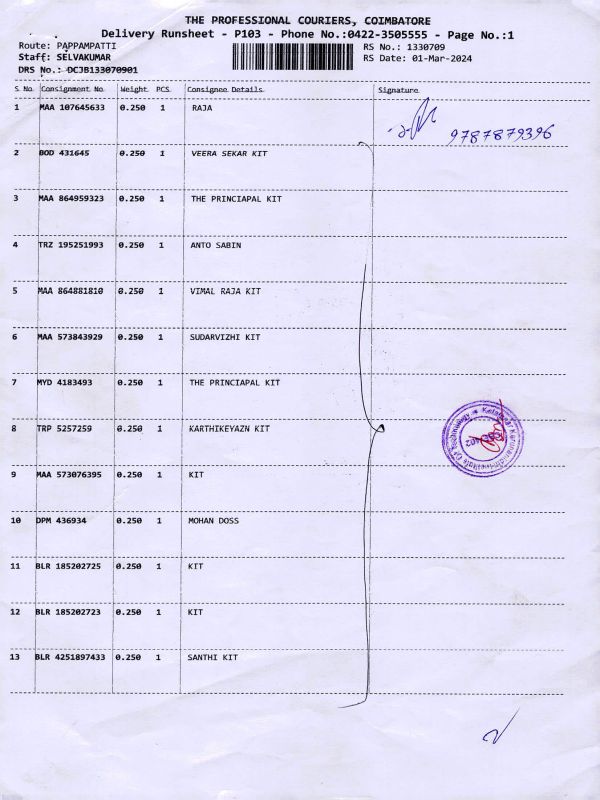 THE PROFESSIONAL COURIERS, COIMBATORE
Delivery Runsheet - P103 - Phone No.:0422-3505555 - Page No.:1
Route: PAPPAMPATTI RS No.: 1330709
Staff: SELVAKUMAR RS Date: 01-Mar-2024
DRS No.: DCJB133070901
S No Consignment No Weight PCS Consignee Details Signature
1 MAA 107645633 0.250 1 RAJA
9787879396
2 BOD 431645 0.250 1 VEERA SEKAR KIT
3 MAA 864959323 0.250 1 THE PRINCIAPAL KIT
4 TRZ 195251993 0.250 1 ANTO SABIN
5 MAA 864881810 0.250 1 VIMAL RAJA KIT
6 MAA 573843929 0.250 1 SUDARVIZHI KIT
7 MYD 4183493 0.250 1 THE PRINCIAPAL KIT
8 TRP 5257259 0.250 1 KARTHIKEYAZN KIT
9 MAA 573076395 0.250 1 KIT
10 DPM 436934 0.250 1 MOHAN DOSS
11 BLR 185202725 0.250 1 KIT
12 BLR 185202723 0.250 1 KIT
13 BLR 4251897433 0.250 1 SANTHI KIT